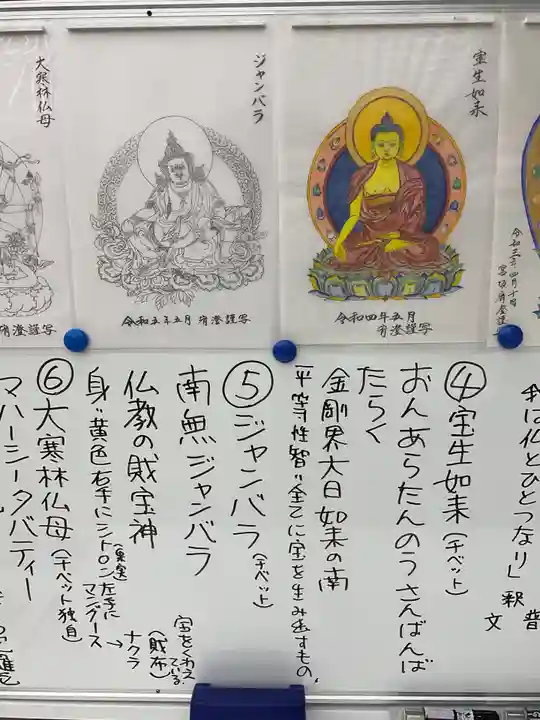 宝生如来
令和四年五月
宥澄謹写
ジャンバラ
令和五年五月 宥澄謹写
大寒林仏母
宥澄謹写
令和三年四月十日
は仏とひとつなり」
釈
文
④宝生如来(チベット)
おんあらたんのうさんばんば
たらく
金剛界大日如来の南
平等性智〃全てに宝を生み出すもの。
⑤ジャンバラ(チベット)
南無ジャンバラ
仏教の財宝神
身〃黄色右手にシトロン(果実)左手に
マングース
→
ナクラ
(財布)
宝をくわえ
ている。
⑥大寒林仏母(チベット独自)
マハーシータバティー